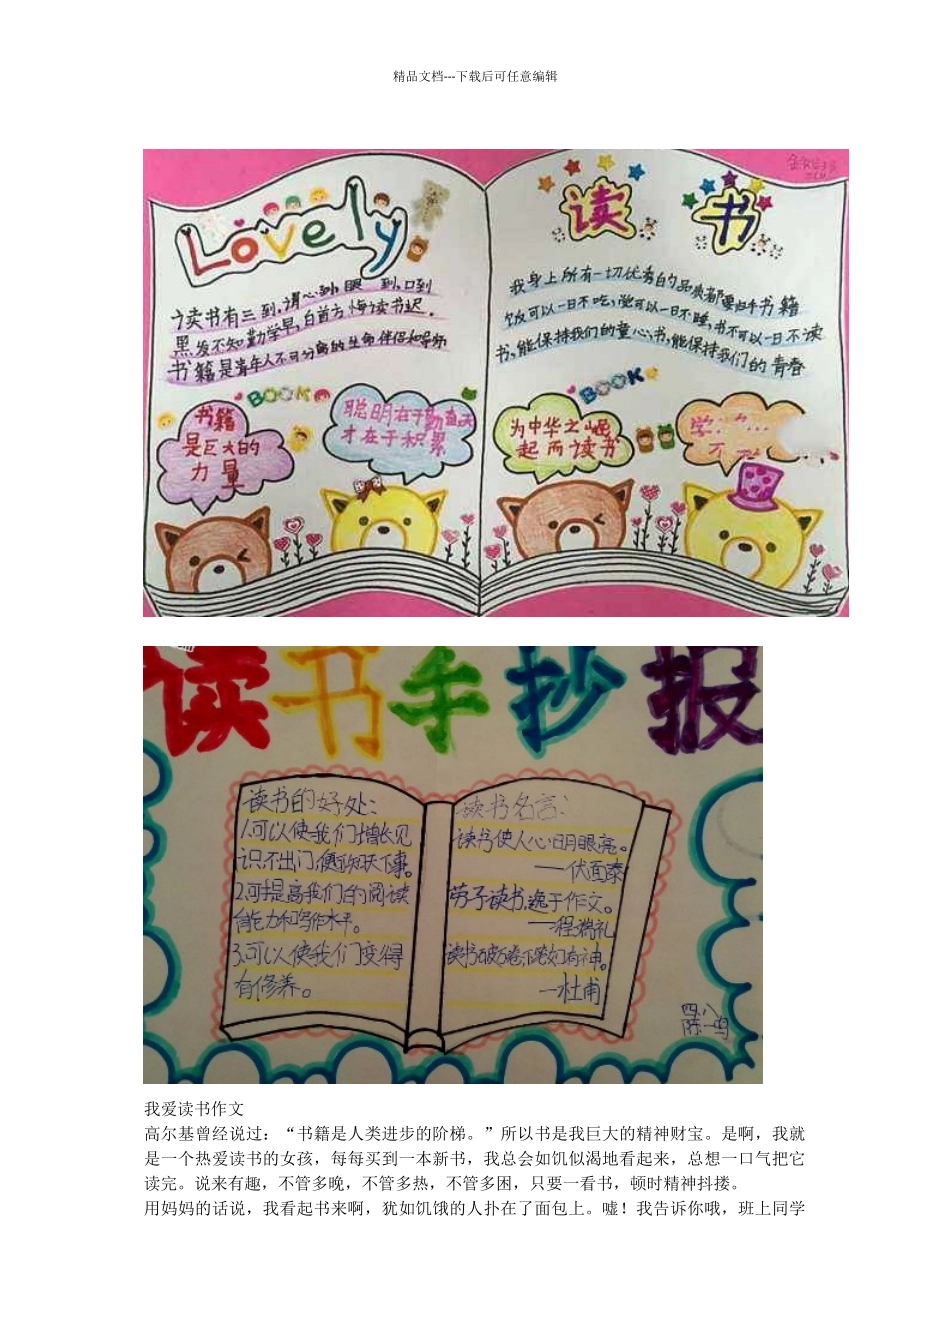 精品文档---下载后可任意编辑
Lovely
读书有三到,谓心到,眼到,口到
黑发不知勤学早,白首方悔读书迟.
书籍是青年人不可分离的生命伴侣和导师
BOOK
书籍
是巨大的
力量
聪明在于勤奋天
才在于积累
读书
我身上所有一切优秀的品质都要归于书籍
饭可以一日不吃,觉可以一日不睡,书不可以一日不读
书,能保持我们的童心;书,能保持我们的青春
BOOK
为中华之崛
起而读书
学
不
读书手抄报
读书的好处:
1.可以使我们增长见
识,不出门,便知天下事。
2.可提高我们的阅读
能力和写作水平。
3.可以使我们变得
有修养。
读书名言:
读书使人心明眼亮。
——伏面泰
劳于读书,逸于作文。
——程端礼
读书破万卷,下笔如有神。
——杜甫
四.八
陈一鸣
我爱读书作文
高尔基曾经说过：“书籍是人类进步的阶梯。”所以书是我巨大的精神财宝。是啊，我就
是一个热爱读书的女孩，每每买到一本新书，我总会如饥似渴地看起来，总想一口气把它
读完。说来有趣，不管多晚，不管多热，不管多困，只要一看书，顿时精神抖搂。
用妈妈的话说，我看起书来啊，犹如饥饿的人扑在了面包上。嘘！我告诉你哦，班上同学